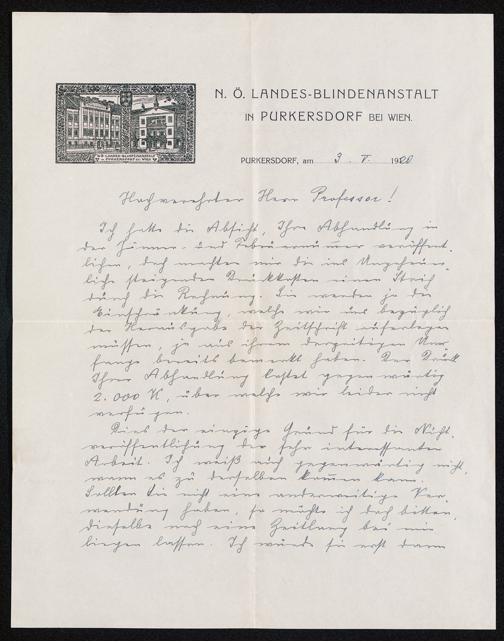 N. Ö. LANDES-BLINDENANSTALT
IN PURKERSDORF BEI WIEN.
N.Ö. LANDES-BLINDENANSTALT
IN PURKERSDORF BEI WIEN
PURKERSDORF, am 3. V. 1920
Hochverehrter Herr Professor!
Ich hatte die Absicht, Ihre Abhandlung in
der Jänner- und Februarnummer veröffent-
lichen, doch machten mir die ins Ungeheuer-
liche steigenden Druckkosten einen Strich
durch die Rechnung. Sie werden ja die
Einschränkung, welche wir uns bezüglich
der Herausgabe der Zeitschrift auferlegen
müssen, ja aus ihrem derzeitigen Um-
fange bereits bemerkt haben. Der Druck
Ihrer Abhandlung kostet gegenwärtig
2.000 K, über welche wir leider nicht
verfügen.
Dies der einzige Grund für die Nicht-
veröffentlichung der sehr interessanten
Arbeit. Ich weiß auch gegenwärtig nicht,
wann es zu derselben kommen kann.
Sollten Sie nicht eine anderweitige Ver-
wendung haben, so möchte ich doch bitten,
dieselbe noch eine Zeitlang bei mir
liegen lassen. Ich würde sie erst dann